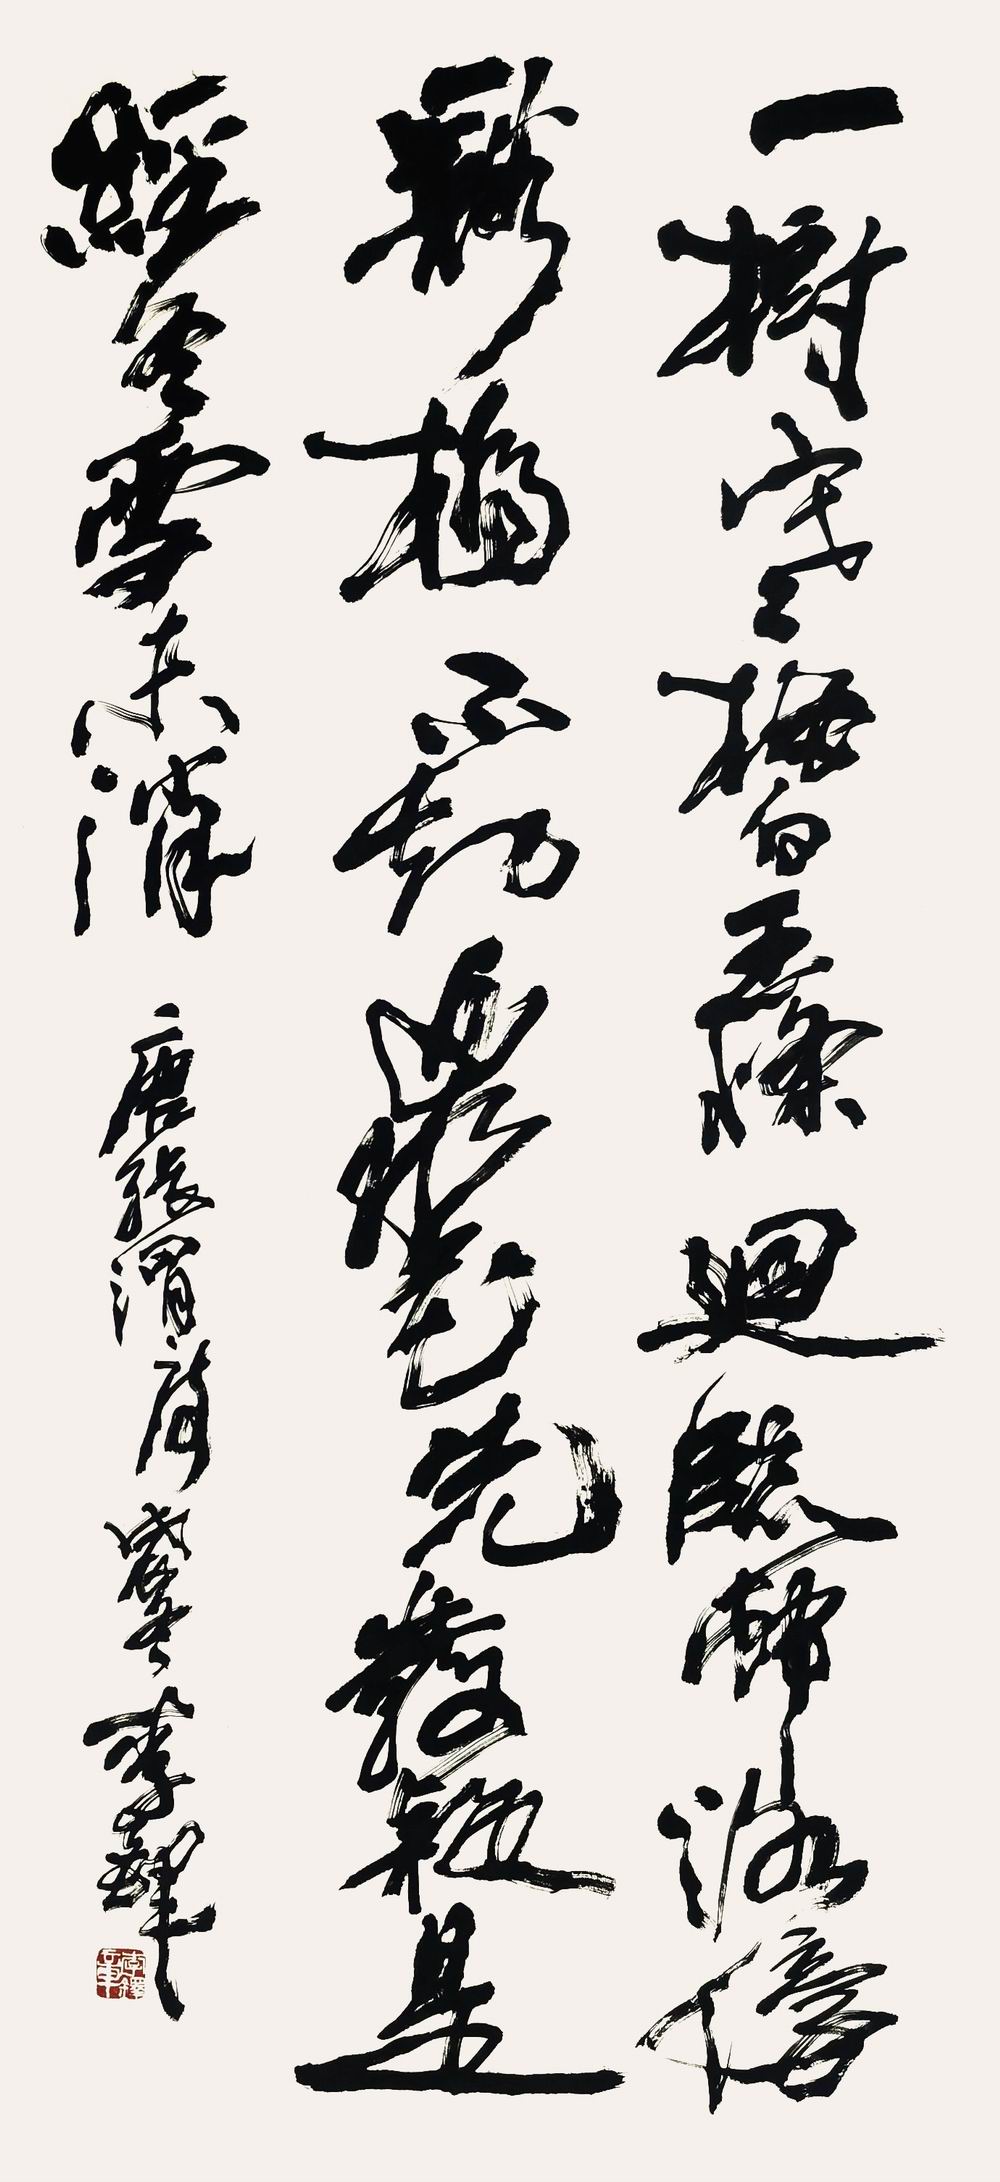 一樹寒梅白玉條迴臨邨路傍
谿橋不知近水花先發疑是
經冬雪未消 唐張謂詩 李鐸